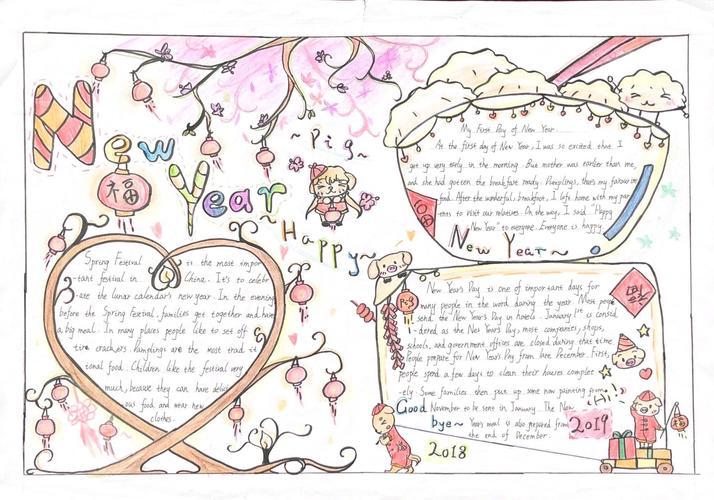 New
Year
福
~Pig~
~Happy~
Spring Festival is the most impor
-tant festival in China. It's to celebr
-ate the lunar calendar's new year. In the evening
before the Spring Festival, families get together and have
a big meal. In many places people like to set off
fire crackers. Dumplings are the most tradi ti
tonal food. Children like the festival very
much, because they can have delici
ous food and wear new
clothes.
My First Day of New Year
At the first day of New Year, I was so excited that I
got up very early in the morning. But mother was earlier than me,
and she had gotten the breakfast ready. Dumplings, that's my favour
find. After the wonderful breakfast, I left home with my par
ents to visit our relatives. On the way, I said "Happy
New Year" to everyone. Everyone is happy.
New Year~
New Year's Day is one of important days for
many people in the word during the year. Most people
send the New Year's Day in hotels. January 1st is consid
-dered as the New Year's Day, most companies, shops,
schools, and government offices are closed during that time.
People prepare for New Year's Day from late December. First,
people spend a few days to clean their houses complet
-ely. Some families then put up some new painting from
November to be seen in January. The New
Years meal is also prepared from
the end of December.
Pig
福
Hi!
Good
bye~
2018
2019
福